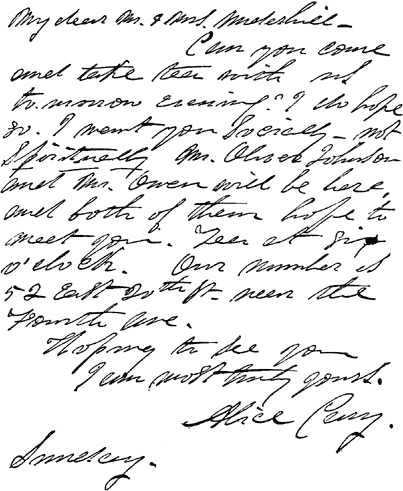 My dear Mr. & Mrs. Underhill—
Can you come
and take tea with us
to-morrow evening? I do hope
so. I want you socially—not
Spiritually Mr. Oliver Johnson
and Mr. Owen will be here,
and both of them hope to
meet you. Tea at six
o'clock. Our number is
52 East 20th St. near the
Fourth Ave.
Hoping to see you
I am most truly yours.
Alice Cary.
Sunday.